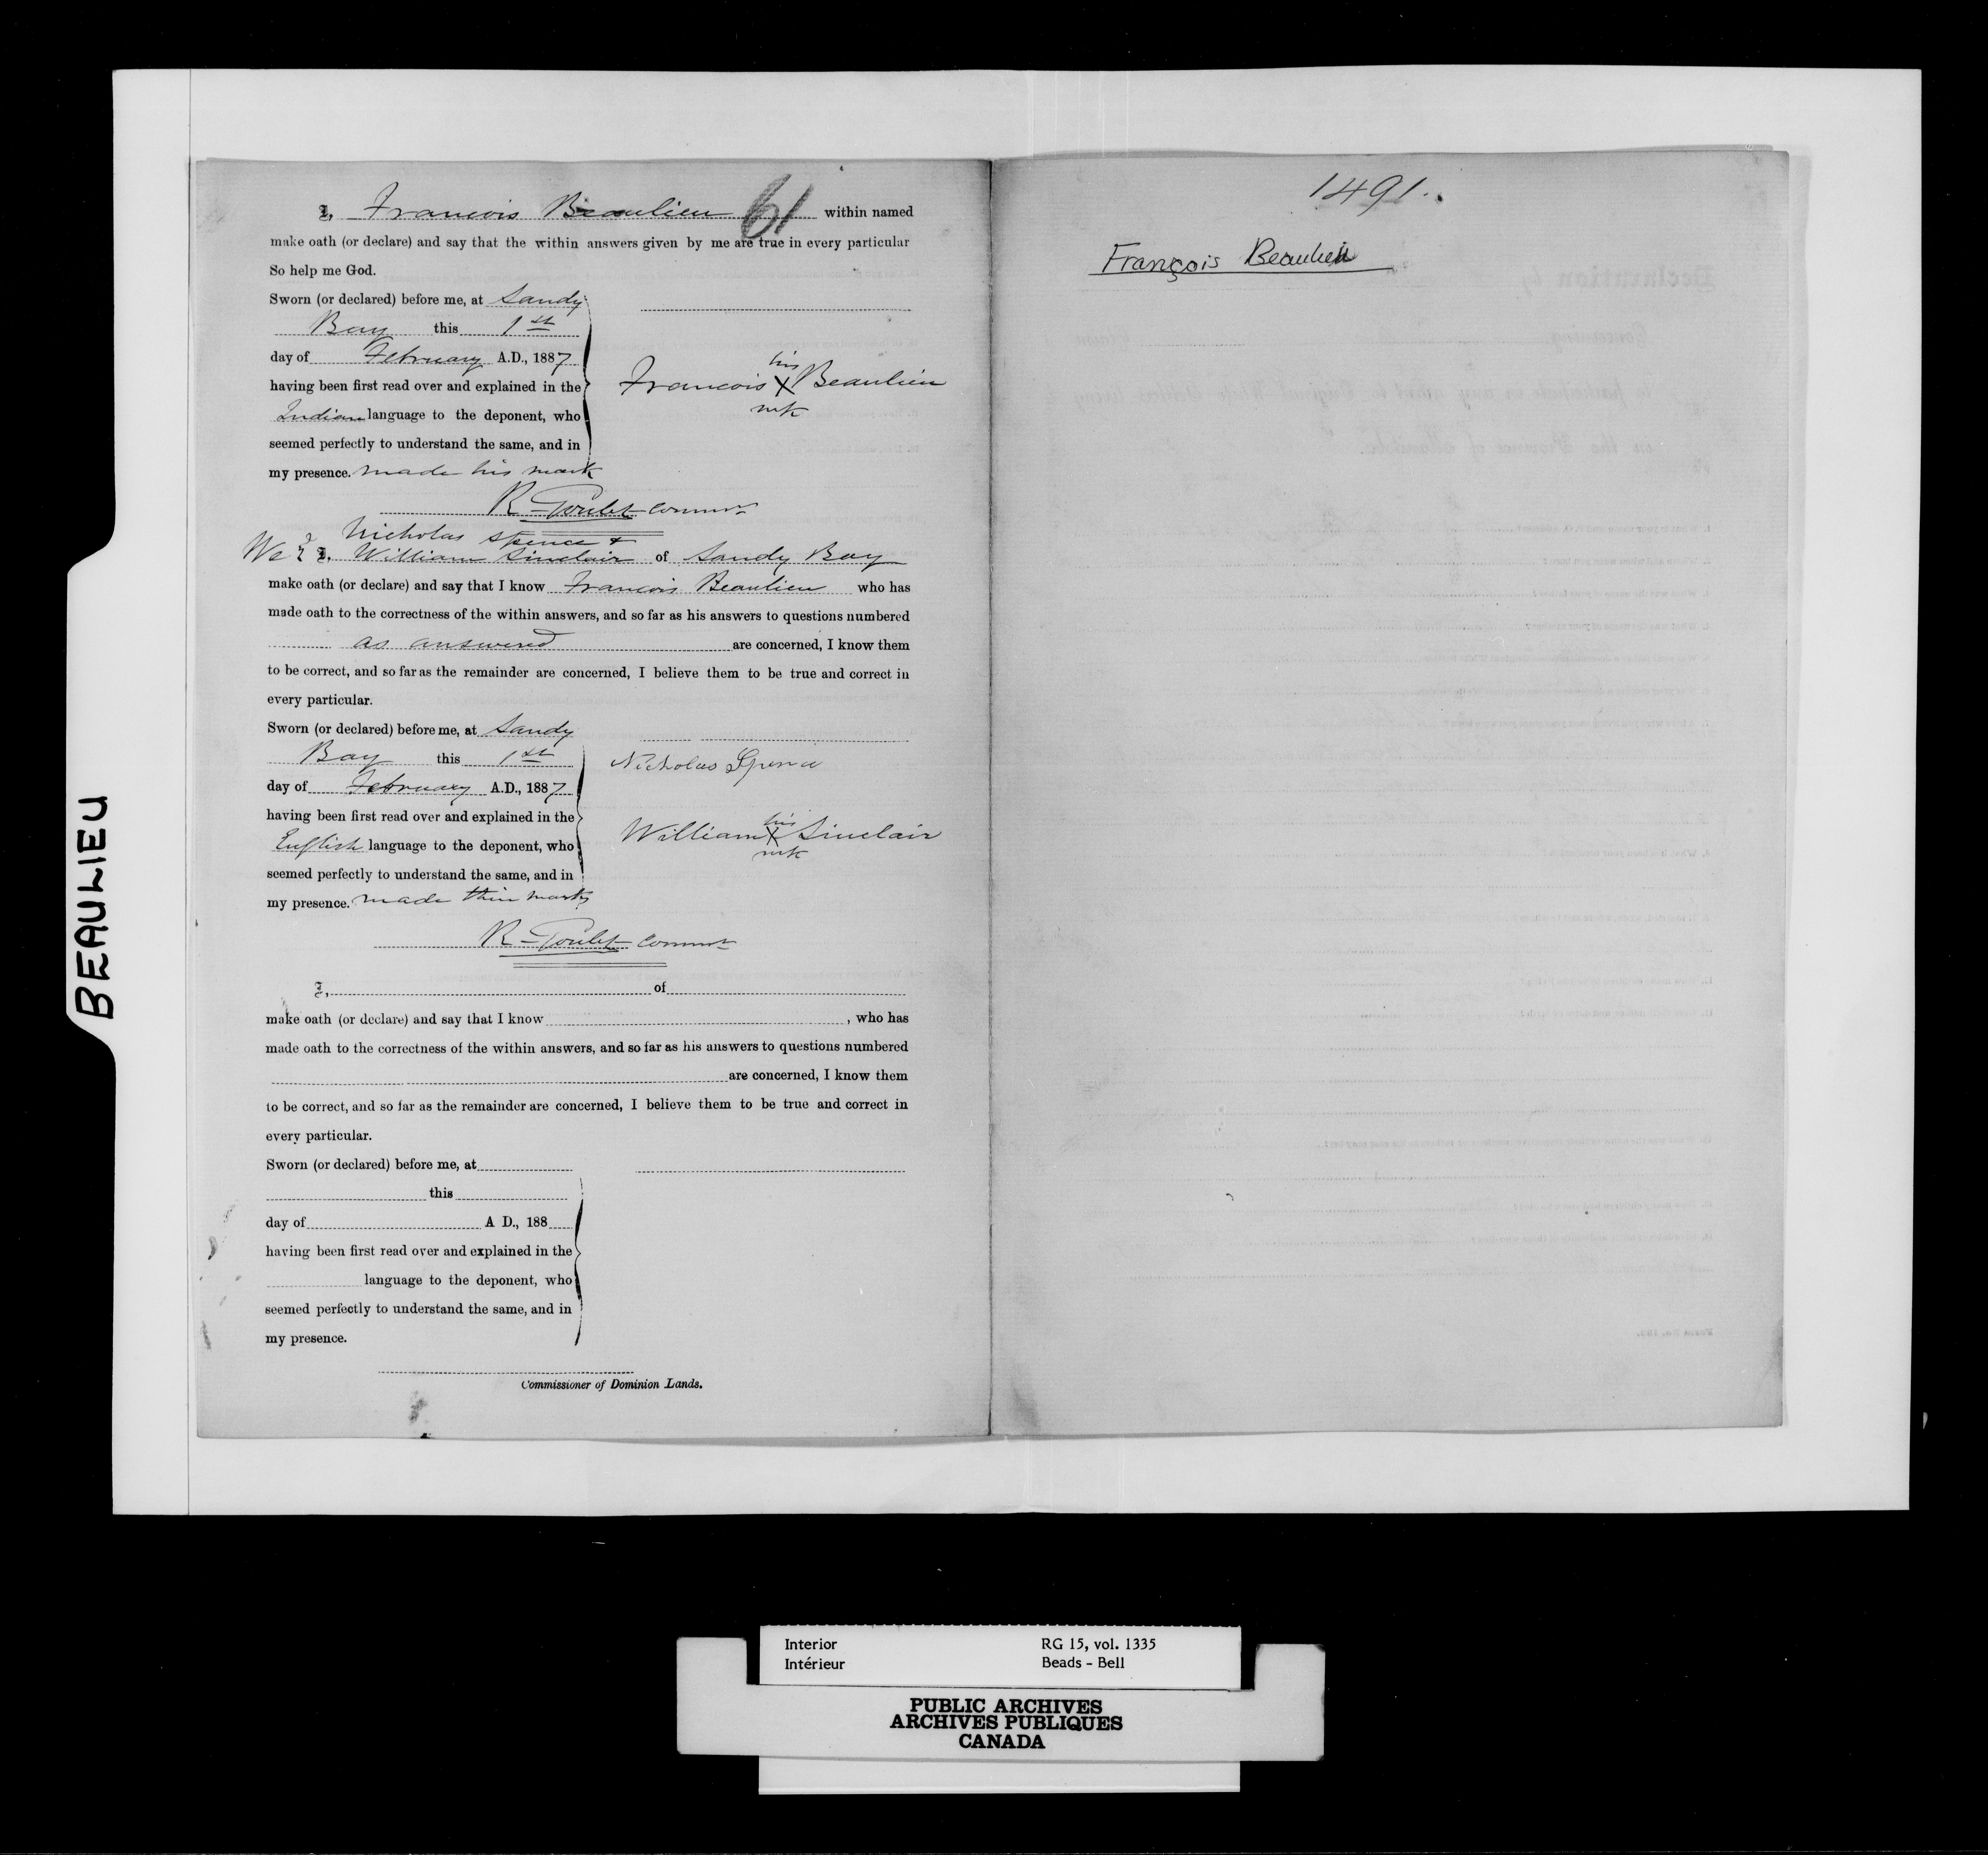 BEAULIEU
I, Francois Beaulieu 61 within named
make oath (or declare) and say that the within answers given by me are true in every particular
So help me God.
Sworn (or declared) before me, at Sandy
Bay this 1st
day of February A.D., 1887
having been first read over and explained in the
Indian language to the deponent, who
seemed perfectly to understand the same, and in
my presence. made his mark
his
Francois X Beaulieu
mk
R Goulet Commr
Nicholas Spence &
We I, William Sinclair of Sandy Bay
make oath (or declare) and say that I know Francois Beaulieu who has
made oath to the correctness of the within answers, and so far as his answers to questions numbered
as answered are concerned, I know them
to be correct, and so far as the remainder are concerned, I believe them to be true and correct in
every particular.
Sworn (or declared) before me, at Sandy
Bay this 1st
day of February A.D., 1887
having been first read over and explained in the
English language to the deponent, who
seemed perfectly to understand the same, and in
my presence. made their marks
Nicholas Spence
his
William X Sinclair
mk
R Goulet Commr
I, of
make oath (or declare) and say that I know , who has
made oath to the correctness of the within answers, and so far as his answers to questions numbered
are concerned, I know them
to be correct, and so far as the remainder are concerned, I believe them to be true and correct in
every particular.
Sworn (or declared) before me, at
this
day of A D., 188
having been first read over and explained in the
language to the deponent, who
seemed perfectly to understand the same, and in
my presence.
Commissioner of Dominion Lands.
1491.
François Beaulieu
Interior RG 15, vol. 1335
Intérieur Beads - Bell
PUBLIC ARCHIVES
ARCHIVES PUBLIQUES
CANADA